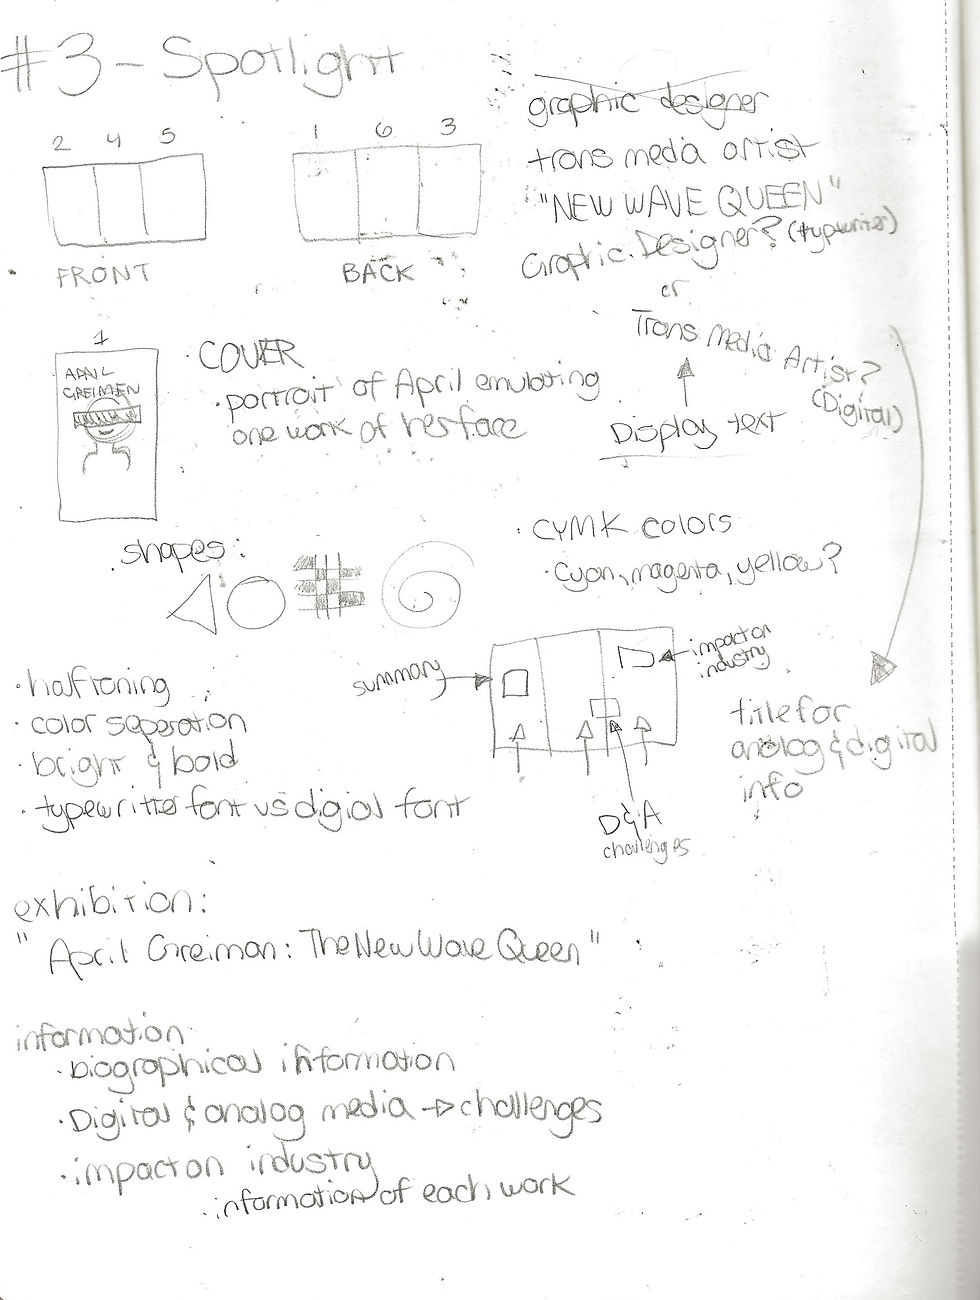 #3 - Spotlight
2 4 5
FRONT
1 6 3
BACK
graphic designer
trans media artist
"NEW WAVE QUEEN"
Graphic Designer? (typwriter)
or
Trans Media Artist?
(Digital)
Display text
1
APRIL
GREIMEN
COVER
· portrait of April emulating
one work of her face
· shapes:
· CYMK colors
· cyan, magenta, yellow?
· halftoning
· color seperation
· bright & bold
· typewritter font vs digial font
summary
impact on
industry
D&A
challenges
title for
analog & digital
info
exhibition:
"April Greiman: The New Wave Queen"
information
· biographical information
· Digital & analog media → challenges
· impact on industry
· information of each work